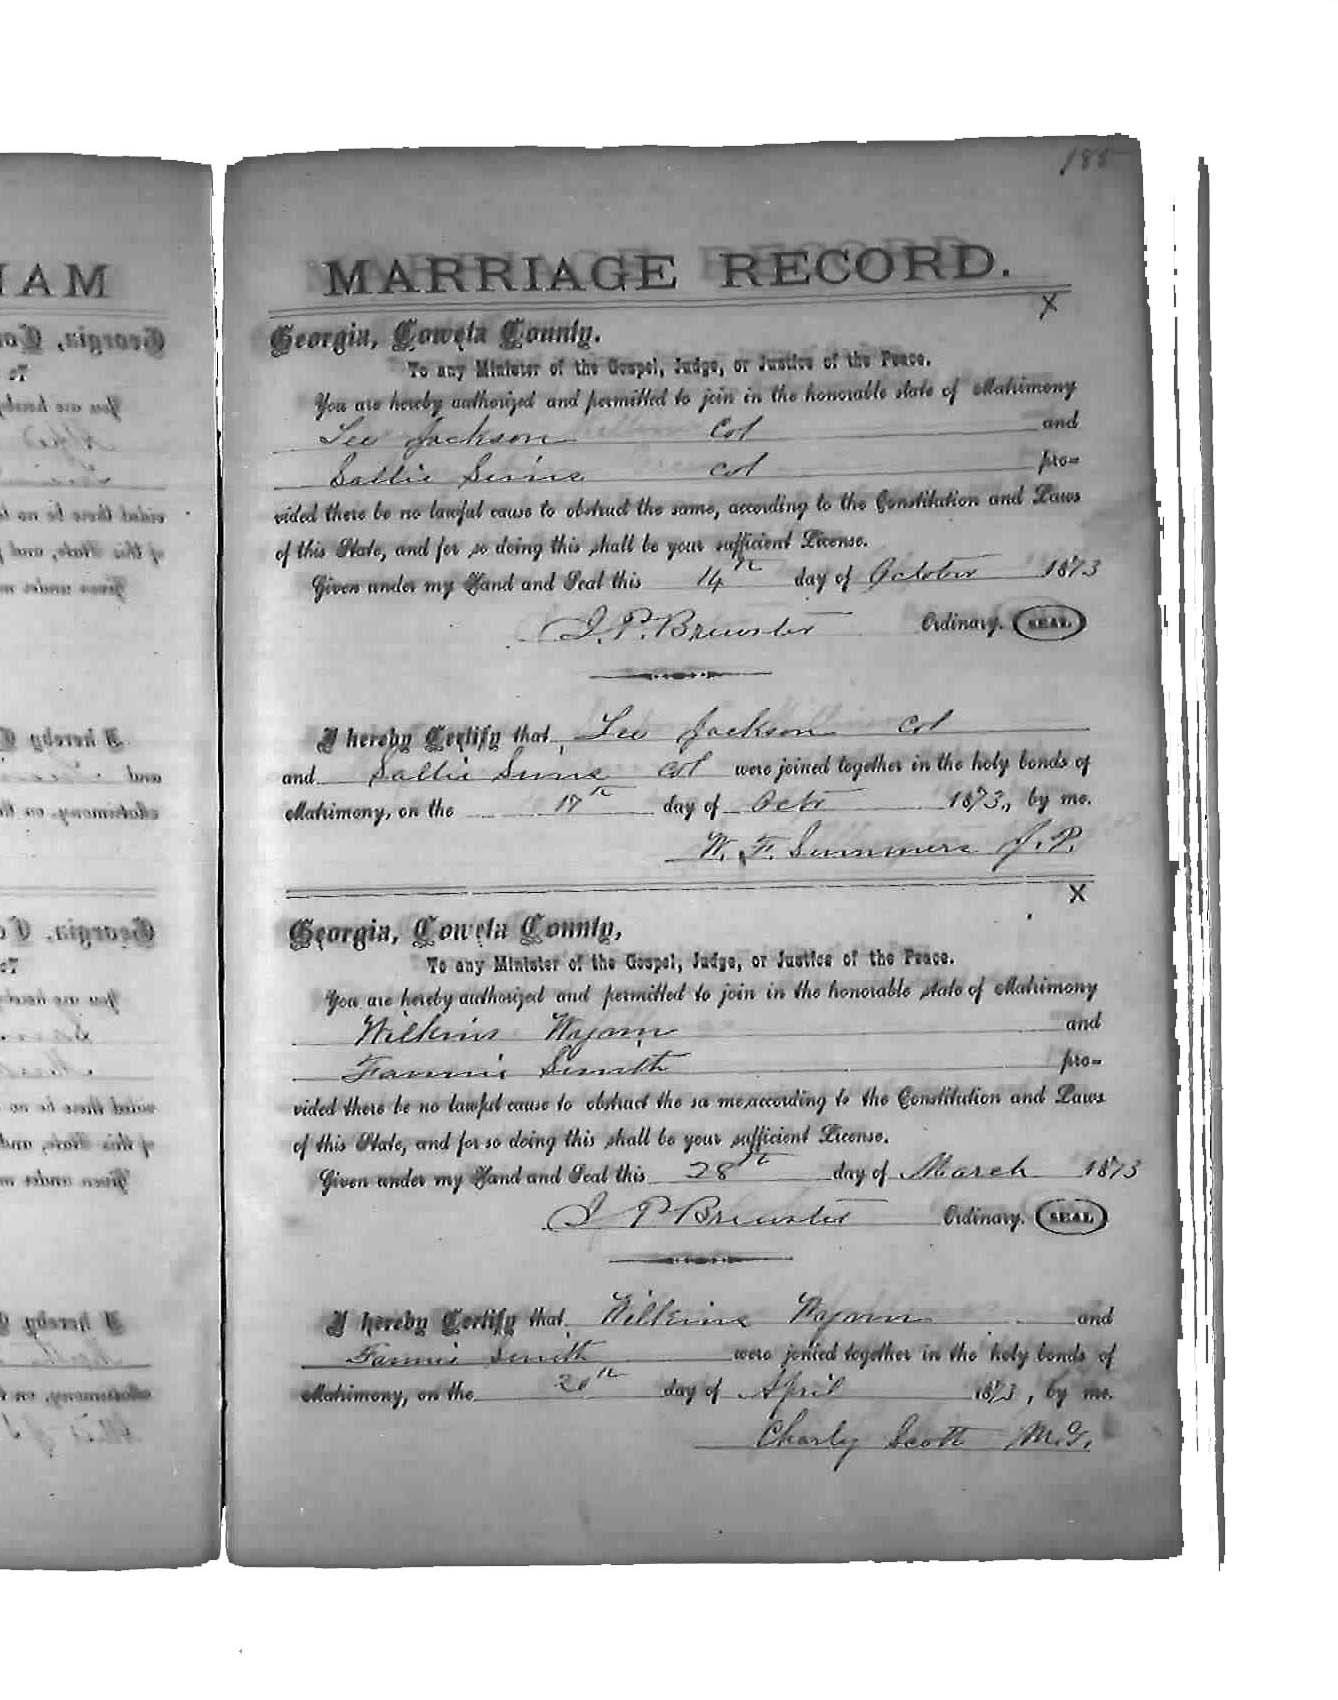 185
MARRIAGE RECORD.
X
Georgia, Coweta County.
To any Minister of the Gospel, Judge, or Justice of the Peace.
You are hereby authorized and permitted to join in the honorable state of Matrimony
Lee Jackson Col and
Sallie Sims col pro=
vided there be no lawful cause to obstruct the same, according to the Constitution and Laws
of this State, and for so doing this shall be your sufficient License.
Given under my Hand and Seal this 14th day of October 1873
J. P. Brewster Ordinary. SEAL
I hereby Certify that Lee Jackson col
and Sallie Sims col were joined together in the holy bonds of
Matrimony, on the 17th day of Octr 1873, by me.
W. F. Summers J. P.
X
Georgia, Coweta County,
To any Minister of the Gospel, Judge, or Justice of the Peace.
You are hereby authorized and permitted to join in the honorable state of Matrimony
Wilkins Wynn and
Fannie Smith pro=
vided there be no lawful cause to obstruct the sa me,according to the Constitution and Laws
of this State, and for so doing this shall be your sufficient License.
Given under my Hand and Seal this 28th day of March 1873
J P Brewster Ordinary. SEAL
I hereby Certify that Wilkins Wynn and
Fannie Smith were jonied together in the holy bonds of
Matrimony, on the day of April 1873, by me.
Charly Scott M.G.